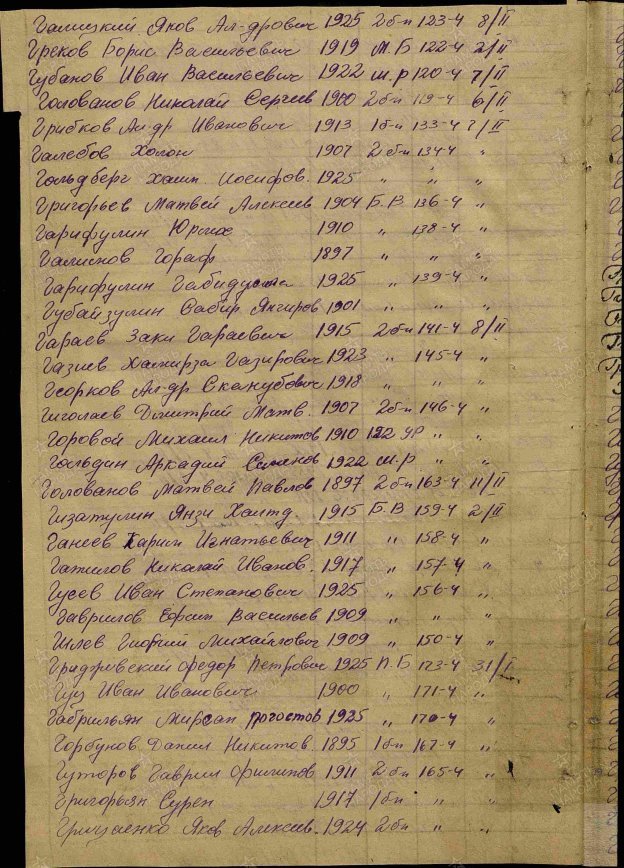 Галицкий Яков Ал-дрович 1925 2б-н 123-4 8/II
Греков Борис Васильевич 1919 М.Б 122-4 2/II
Губанов Иван Васильевич 1922 ш.р 120-4 7/II
Голованов Николай Сергеев 1900 2б-н 119-4 6/II
Грибков Ал-др Иванович 1913 1б-н 133-4 7/II
Холон 1907 2б-н 134-4 "
Гольдберг Хаим Иосифов. 1925 " " "
Григорьев Матвей Алексеев 1904 Б.В 136-4 "
Гарифулин 1910 " 138-4 "
1897 " " "
Гарифулин 1925 " 139-4 "
Губайзулин Сабир 1901 " " "
Гараев Заки Гараевич 1915 2б-н 141-4 8/II
Газиев Газирович 1923 " 145-4 "
Ал-др 1918 " " "
Гиголаев Дмитрий Матв. 1907 2б-н 146-4 "
Горовой Михаил Никитов 1910 122 " "
Гольдин Аркадий Семенов 1922 ш.р " "
Голованов Матвей Павлов 1897 2б-н 163-4 11/II
Гизатулин Янзи 1915 Б.В 159-4 2/II
Ганеев Карим Игнатьевич 1911 " 158-4 "
Николай Иванов. 1917 " 157-4 "
Гусев Иван Степанович 1925 " 156-4 "
Гаврилов Ефим Васильев 1909 " " "
Михайлович 1909 " 150-4 "
Федор Петрович 1925 П.Б 173-4 31/I
Гуз Иван Иванович 1900 " 171-4 "
Габрильян 1925 " 170-4 "
Горбунов Данил Никитов. 1895 1б-н 167-4 "
Гуторов Гаврил 1911 2б-н 165-4 "
Григорьян Сурен 1917 1б-н " "
Грицаенко Яков Алексеев. 1924 2б-н " "